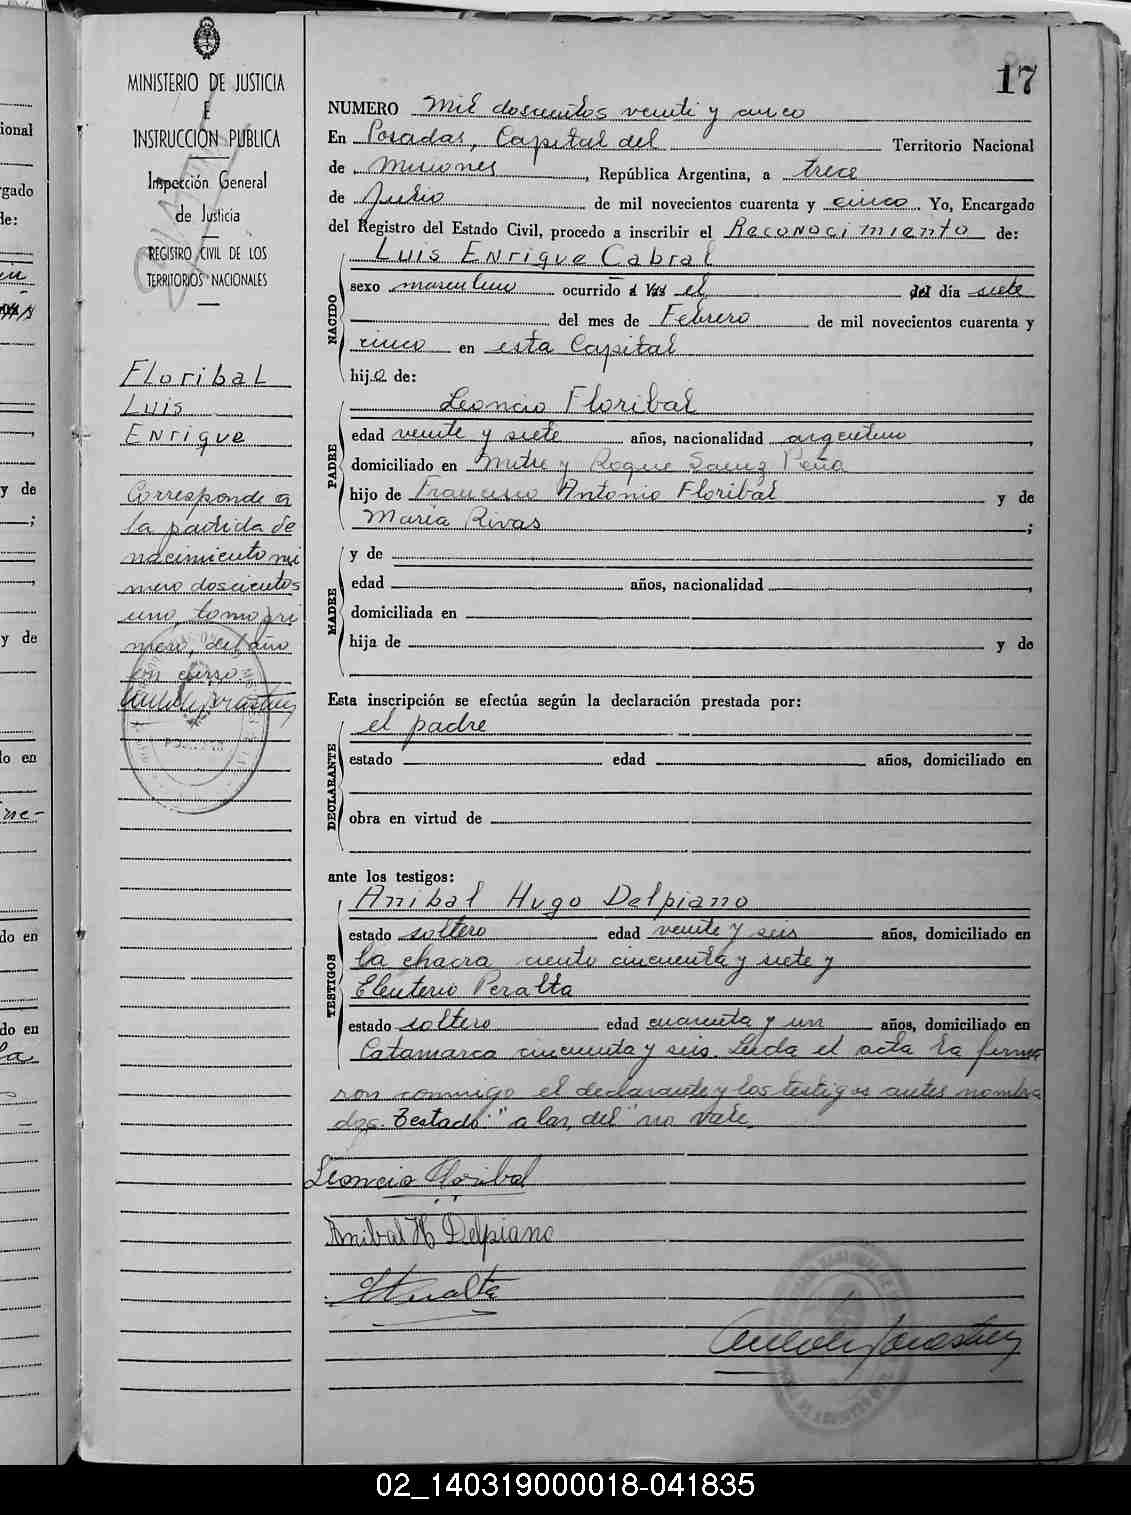 17
MINISTERIO DE JUSTICIA
E
INSTRUCCIÓN PUBLICA
Inspección General
de Justicia
REGISTRO CIVIL DE LOS
TERRITORIOS NACIONALES
Floribal
Luis
Enrique
Corresponde a
la partida de
nacimiento nú
mero doscientos
uno, tomo pri
mero, del año
en curso.
NUMERO Mil doscientos veinti y cinco
En Posadas, Capital del Territorio Nacional
de Misiones, República Argentina, a trece
de Julio de mil novecientos cuarenta y cinco. Yo, Encargado
del Registro del Estado Civil, procedo a inscribir el Reconocimiento de:
NACIDO
Luis Enrique Cabral
sexo masculino ocurrido a las el del día siete
del mes de Febrero de mil novecientos cuarenta y
cinco en esta Capital
hijo de:
PADRE
Leoncio Floribal
edad veinte y siete años, nacionalidad argentino,
domiciliado en Mitre y Roque Saenz Peña
hijo de Francisco Antonio Floribal y de
María Rivas;
MADRE
y de
edad años, nacionalidad,
domiciliada en
hija de y de
Esta inscripción se efectúa según la declaración prestada por:
DECLARANTE
el padre
estado edad años, domiciliado en
obra en virtud de
ante los testigos:
TESTIGOS
Anibal Hugo Delpiano
estado soltero edad veinte y seis años, domiciliado en
la chacra ciento cincuenta y siete y
Eleuterio Peralta
estado soltero edad cuarenta y un años, domiciliado en
Catamarca cincuenta y seis. Leída el acta la firma
ron conmigo el declarante y los testigos antes nombra
dos. Testado: "a las, del" no vale.
Leoncio Floribal
Anibal H Delpiano
02_140319000018-041835